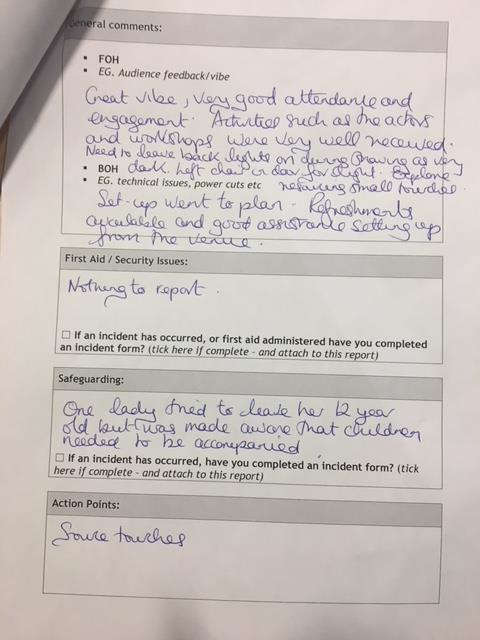 General comments:
FOH
EG. Audience feedback/vibe
Great vibe, very good attendance and
engagement. Activities such as the actors
and workshops were very well received.
Need to leave back lights on during showing as very
BOH dark. Left chair in door for light. Explore
EG. technical issues, power cuts etc retaining small torches.
Set-up went to plan. Refreshments
available and good assistance setting up
from the venue.
First Aid / Security Issues:
Nothing to report.
☐ If an incident has occurred, or first aid administered have you completed
an incident form? (tick here if complete - and attach to this report)
Safeguarding:
One lady tried to leave her 12 year
old but was made aware that children
needed to be accompanied.
☐ If an incident has occurred, have you completed an incident form? (tick
here if complete - and attach to this report)
Action Points:
Source torches